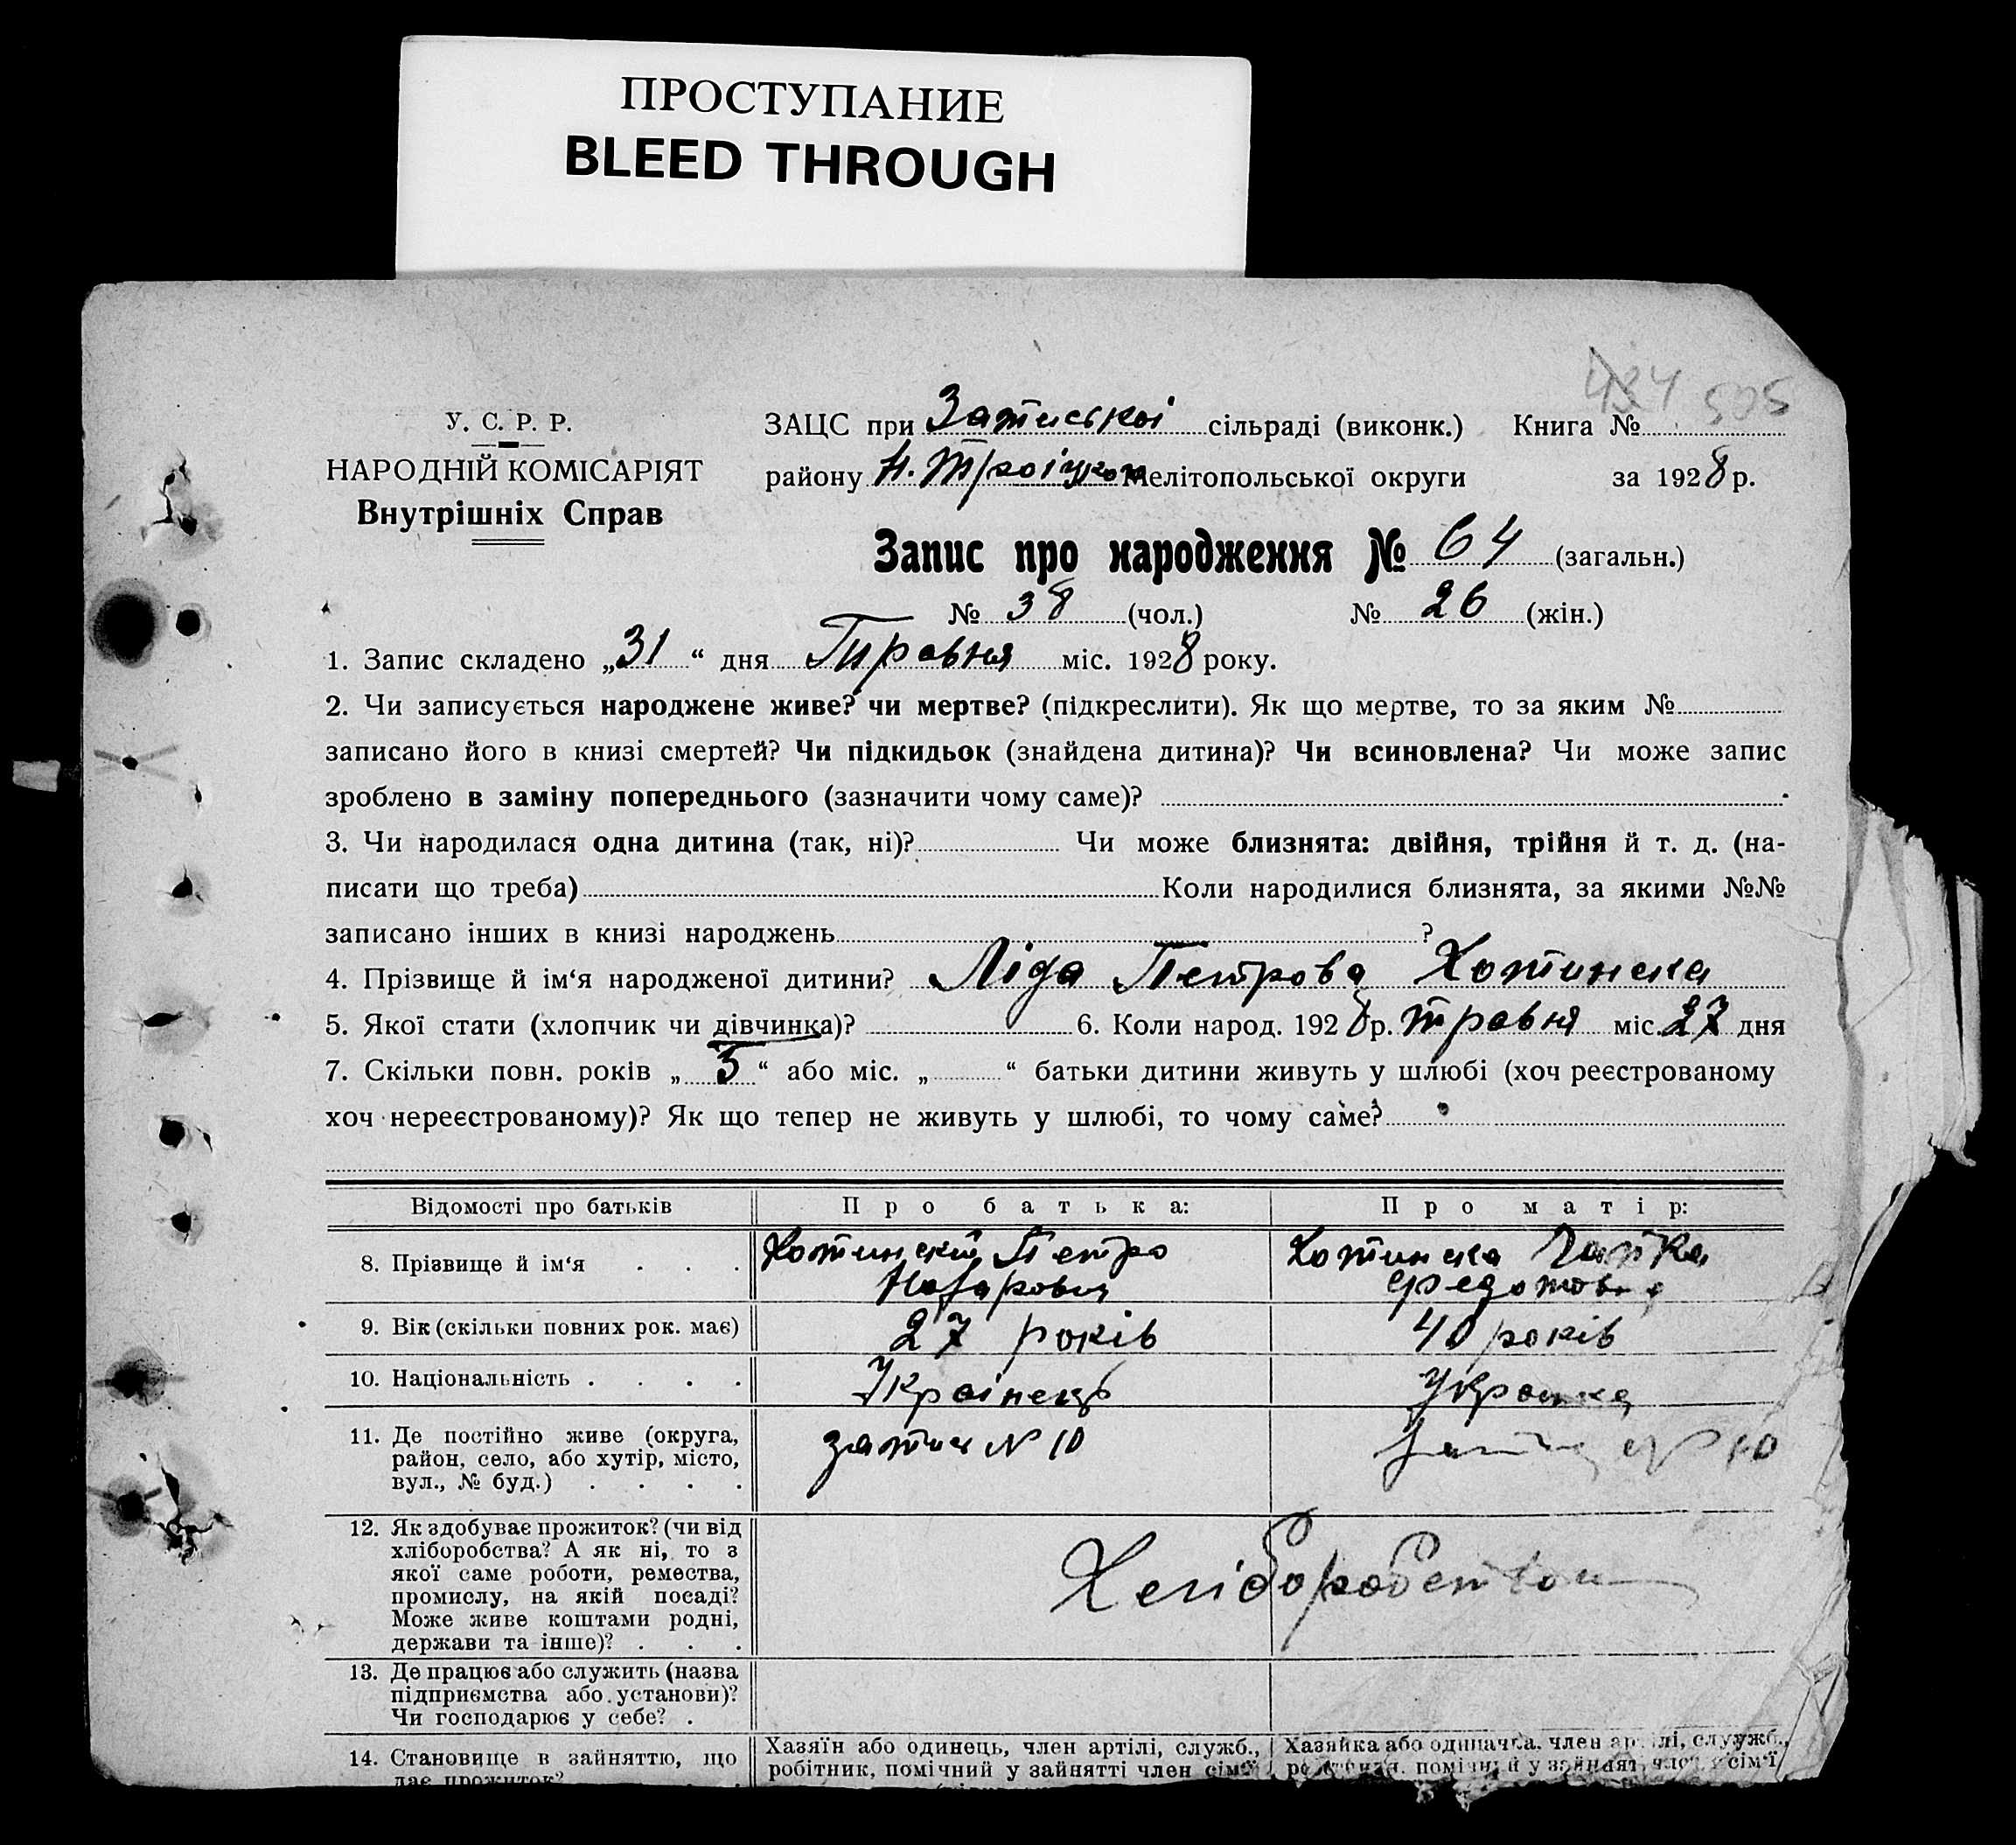 ПРОСТУПАНИЕ
BLEED THROUGH
484 505
У. С. Р. Р.
НАРОДНІЙ КОМІСАРІЯТ
Внутрішніх Справ
ЗАЦС при Затиської сільраді (виконк.) Книга №
району Н. Троіцком Мелітопольської округи за 1928 р.
Запис про народження № 64 (загальн.)
№ 38 (чол.) № 26 (жін.)
1. Запис складено „31“ дня Травня міс. 1928 року.
2. Чи записується народжене живе? чи мертве? (підкреслити). Як що мертве, то за яким №
записано його в книзі смертей? Чи підкидьок (знайдена дитина)? Чи всиновлена? Чи може запис
зроблено в заміну попереднього (зазначити чому саме)?
3. Чи народилася одна дитина (так, ні)? Чи може близнята: двійня, трійня й т. д. (на-
писати що треба) Коли народилися близнята, за якими №№
записано інших в книзі народжень ?
4. Прізвище й ім‘я народженої дитини? Ліда Петрова Хотинска
5. Якої стати (хлопчик чи дівчинка)? 6. Коли народ. 1928 р. травня міс. 27 дня
7. Скільки повн. років „ 5 “ або міс. „ “ батьки дитини живуть у шлюбі (хоч реєстрованому
хоч нереєстрованому)? Як що тепер не живуть у шлюбі, то чому саме?
Відомості про батьків Про батька: Про матір:
8. Прізвище й ім‘я . . . Хотинский Петро Хотинска
Назарович Федотовна
9. Вік (скільки повних рок. має) 27 років 40 років
10. Національність . . . . Україінець Українка
11. Де постійно живе (округа,
район, село, або хутір, місто,
вул., № буд.) . . . .
затиш № 10 № 10
12. Як здобуває прожиток? (чи від
хліборобства? А як ні, то з
якої саме роботи, ремества,
промислу, на якій посаді?
Може живе коштами родні,
держави та інше)? . . .
Хліборобством
13. Де працює або служить (назва
підприємства або установи)?
Чи господарює у себе? .
14. Становище в зайняттю, що
дає прожиток?
Хазяїн або одинець, член артілі, служб.,
робітник, помічний у зайнятті член сім‘ї
Хазяйка або одиначка, член артілі, служб.,
помічний у зайнятт. член сім‘ї